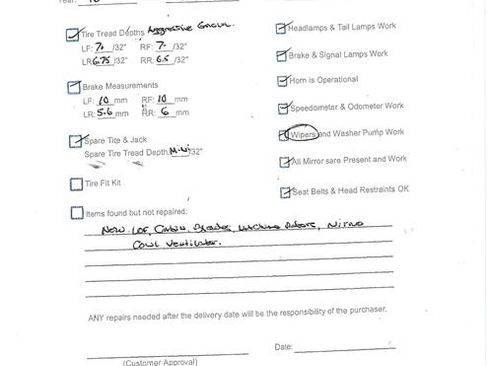 Tire Tread Depths Aggressive
LF: 7. /32" RF: 7. /32"
LR: 6.75 /32" RR: 6.5 /32"
Brake Measurements
LF: 10 mm RF: 10 mm
LR: 5.6 mm RR: 6 mm
Spare Tire & Jack
Spare Tire Tread Depth: /32"
Tire Fit Kit
Items found but not repaired:
New LOF, Cabin,
Cowl Ventilator.
Headlamps & Tail Lamps Work
Brake & Signal Lamps Work
Horn is Operational
Speedometer & Odometer Work
Wipers and Washer Pump Work
All Mirror sare Present and Work
Seat Belts & Head Restraints OK
ANY repairs needed after the delivery date will be the responsibility of the purchaser.
(Customer Approval)
Date: